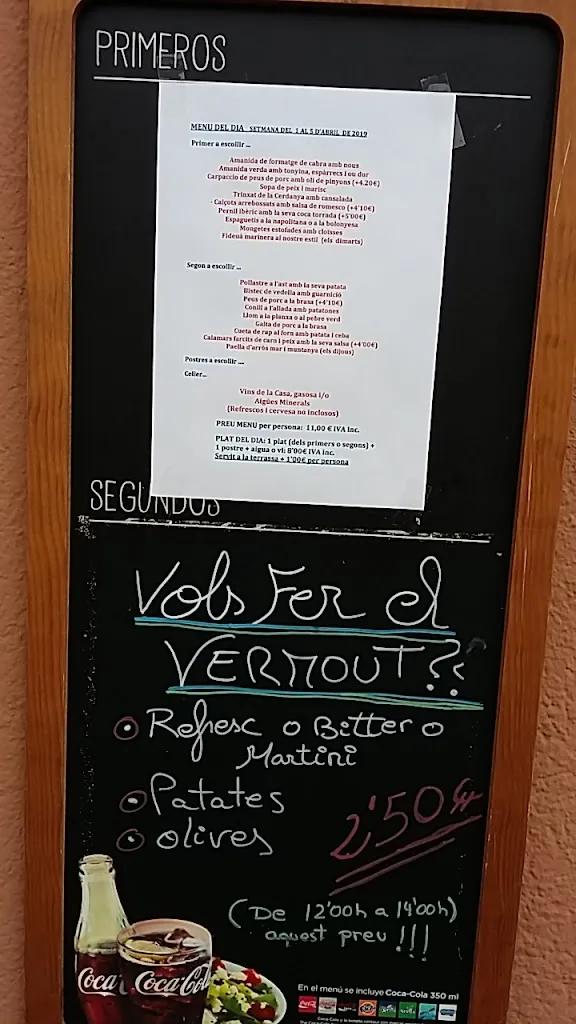 PRIMEROS
MENU DEL DIA SETMANA DEL 1 AL 5 D'ABRIL DE 2019
Primer a escollir ...
Amanida de formatge de cabra amb nous
Amanida verda amb tonyina, espàrrecs i ou dur
Carpaccio de peus de porc amb oli de pinyons (+4.20€)
Sopa de peix i marisc
Trinxat de la Cerdanya amb cansalada
Calçots arrebossats amb salsa de romesco (+4'10€)
Pernil ibèric amb la seva coca torrada (+5'00€)
Espaguetis a la napolitana o a la bolonyesa
Mongetes estofades amb cloïsses
Fideuà marinera al nostre estil (els dimarts)
Segon a escollir ...
Pollastre a l'ast amb la seva patata
Bistec de vedella amb guarnició
Peus de porc a la brasa (+4'10€)
Conill a l'allada amb patatones
Llom a la planxa o al pebre verd
Galta de porc a la brasa
Cueta de rap al forn amb patata i ceba
Calamars farcits de carn i peix amb la seva salsa (+4'00€)
Paella d'arròs mar i muntanya (els dijous)
Postres a escollir ....
Celler...
Vins de la Casa, gasosa i/o
Aigües Minerals
(Refrescos i cervesa no inclosos)
PREU MENU per persona: 11,00 € IVA inc.
PLAT DEL DIA: 1 plat (dels primers o segons) +
1 postre + aigua o vi: 8'00€ IVA inc.
Servit a la terrassa + 1'00€ per persona
SEGUNDOS
Vols Fer el
VERMOUT??
Refresc o Bitter o
Martini
Patates
olives
2'50
(De 12'00h a 14'00h)
aquest preu !!!
Coca Coca-Cola
En el menú se incluye Coca-Cola 350 ml